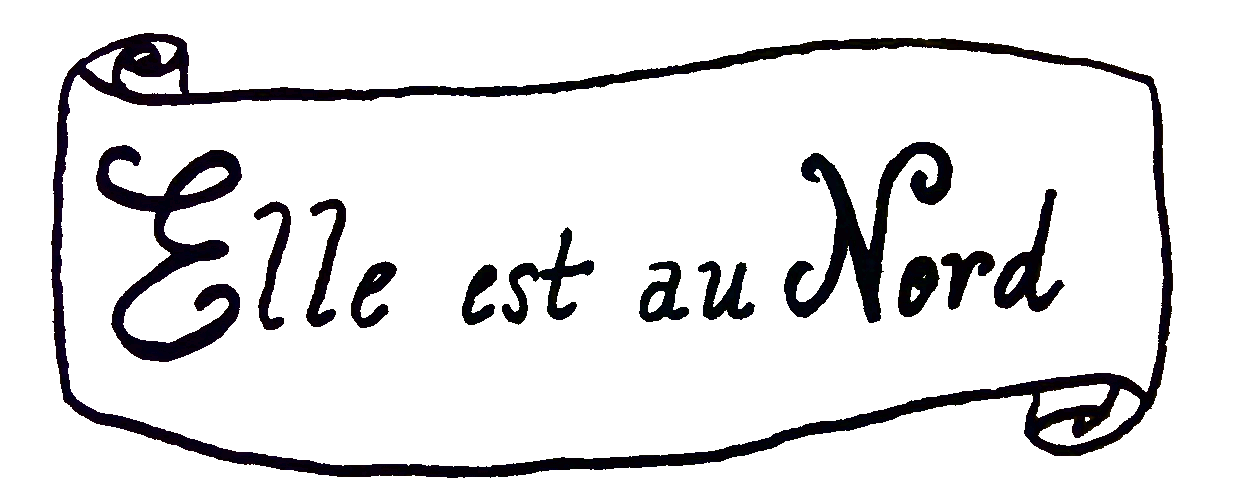 Elle est au Nord